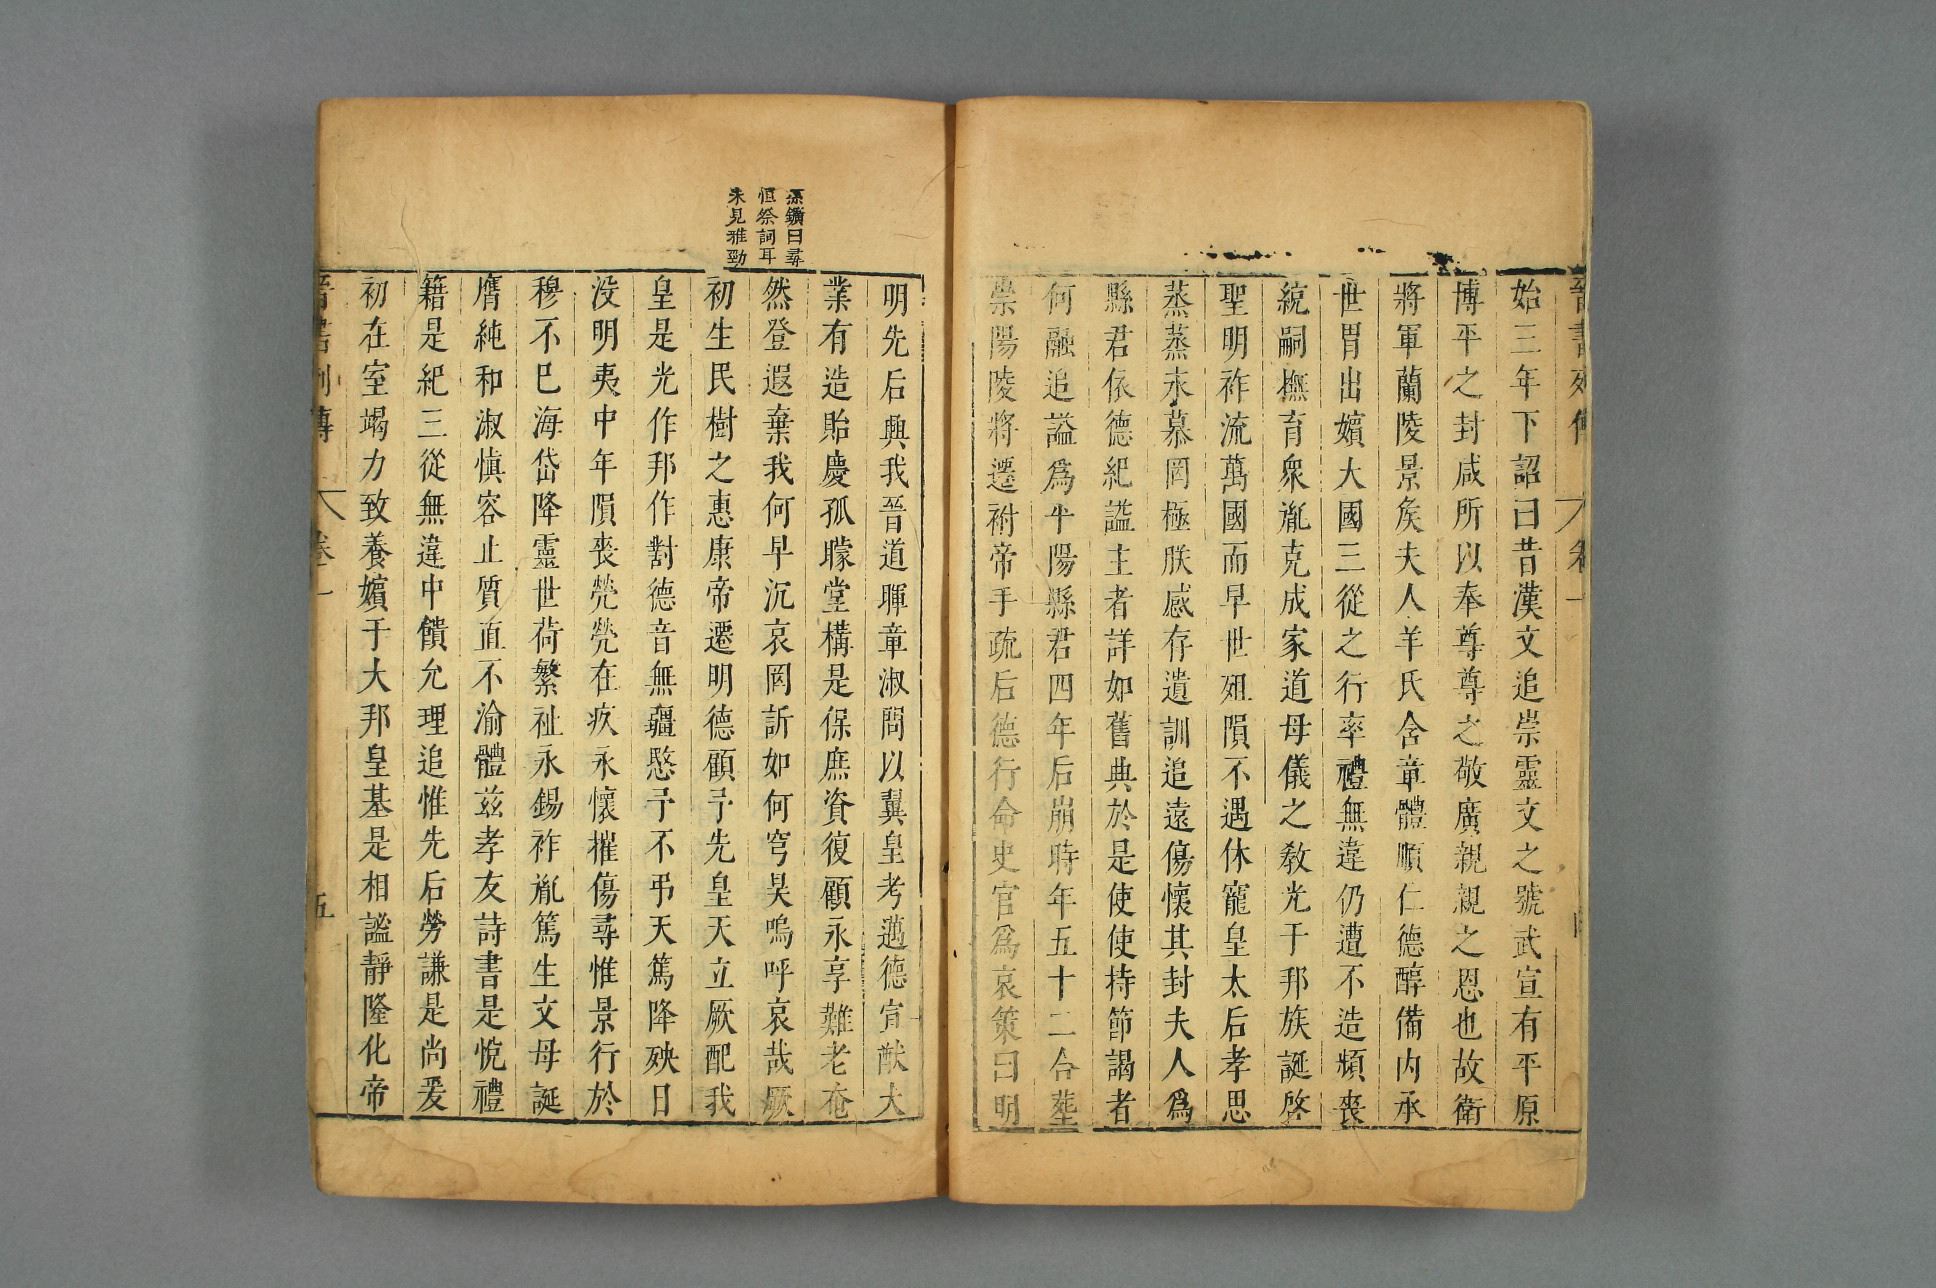 始三年下詔曰昔漢文追崇靈文之號武宣有平原
博平之封咸所以奉尊尊之敬廣親親之恩也故衛
將軍蘭陵景矦夫人羊氏含章體順仁德醇備内承
世胄出嬪大國三從之行率禮無違仍遭不造頻喪
統嗣撫育衆胤克成家道母儀之教光于邦族誕啓
聖明祚流萬國而早世殂隕不遇休寵皇太后孝思
蒸蒸永慕罔極朕感存遺訓追遠傷懷其封夫人爲
縣君依德紀謚主者詳如舊典於是使使持節謁者
何融追謚爲平陽縣君四年后崩時年五十二合葬
崇陽陵將遷祔帝手疏后德行命史官爲哀策曰明
孫鑛曰尋
恒祭詞耳
未見雅勁
明先后興我晉道暉章淑問以翼皇考邁德宣猷大
業有造貽慶孤矇堂構是保庶資復顧永享難老奄
然登遐棄我何早沉哀罔訴如何穹昊嗚呼哀哉厥
初生民樹之惠康帝遷明德顧予先皇天立厥配我
皇是光作邦作對德音無疆愍予不弔天篤降殃日
没明夷中年隕喪煢煢在疚永懷摧傷尋惟景行於
穆不已海岱降靈世荷繁祉永錫祚胤篤生文母誕
膺純和淑愼容止質直不渝體兹孝友詩書是悅禮
籍是紀三從無違中饋允理追惟先后勞謙是尚爰
初在室竭力致養嬪于大邦皇基是相謐靜隆化帝
晉書列傳 卷一 五